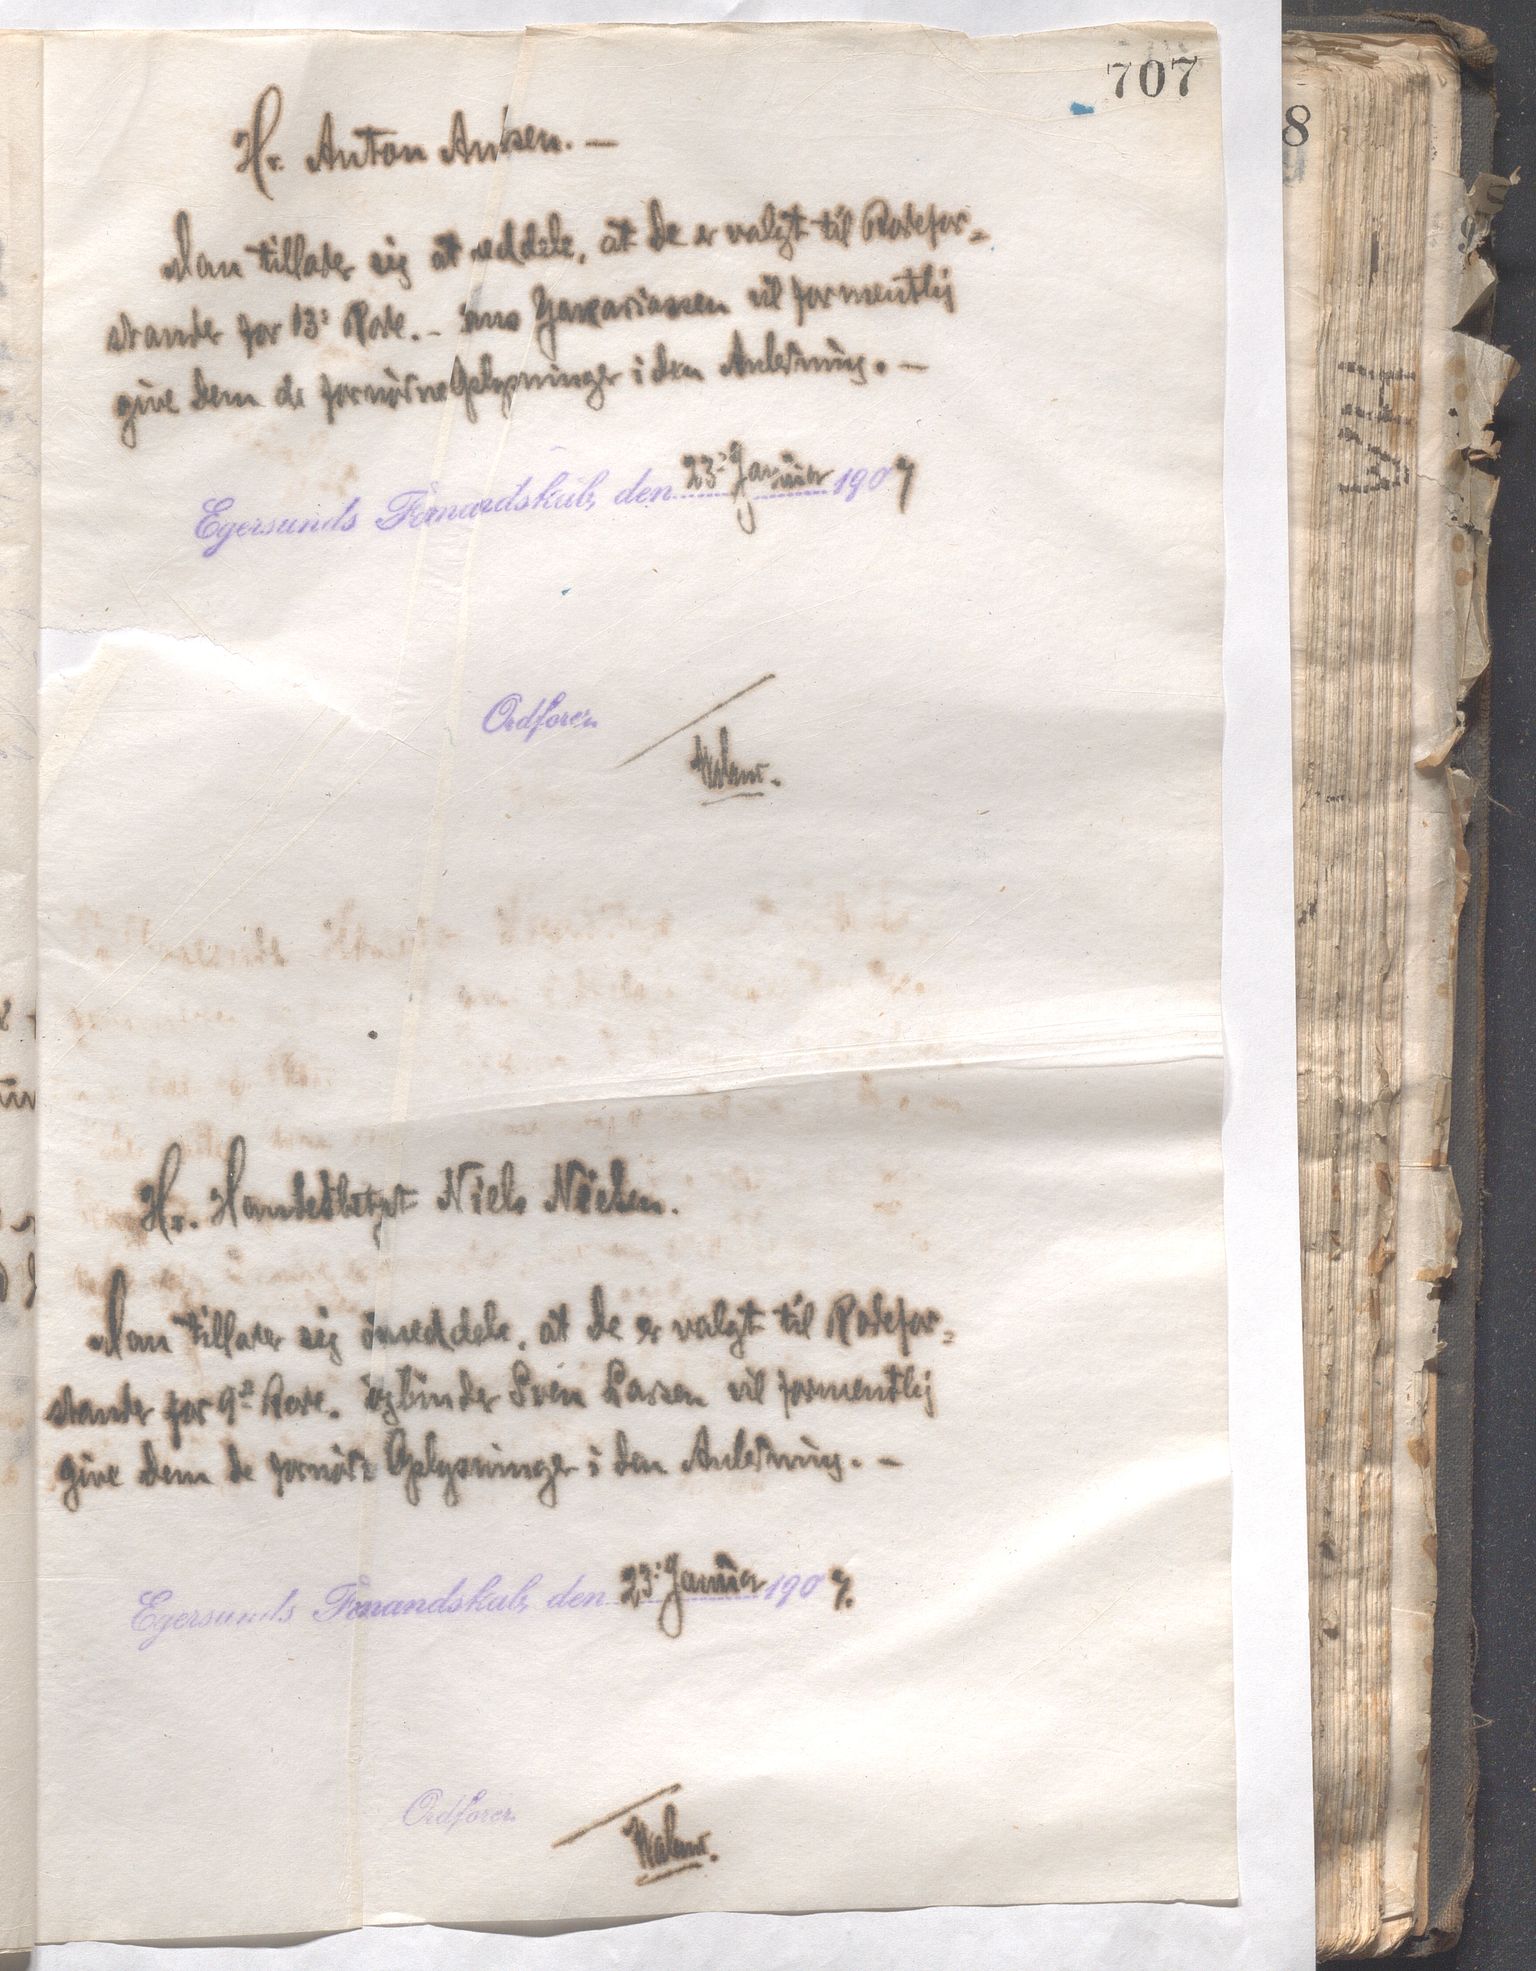 707
Hr. Anton
Man tillader sig at meddele, at De er valgt til Rodefor=
stander for 13: Rode. – vil formentlig
give Dem de fornødne Oplysninger i den Anledning. –
Egersunds Formandskab, den 23: Januar 1907
Ordfører
Hr. Niels Nielsen.
Man tillader sig meddele, at De er valgt til Rodefor=
stander for 9de Rode. Sven Larsen vil formentlig
give Dem de fornødne Oplysninger i den Anledning. –
Egersunds Formandskab, den 23: Januar 1907.
Ordfører
8